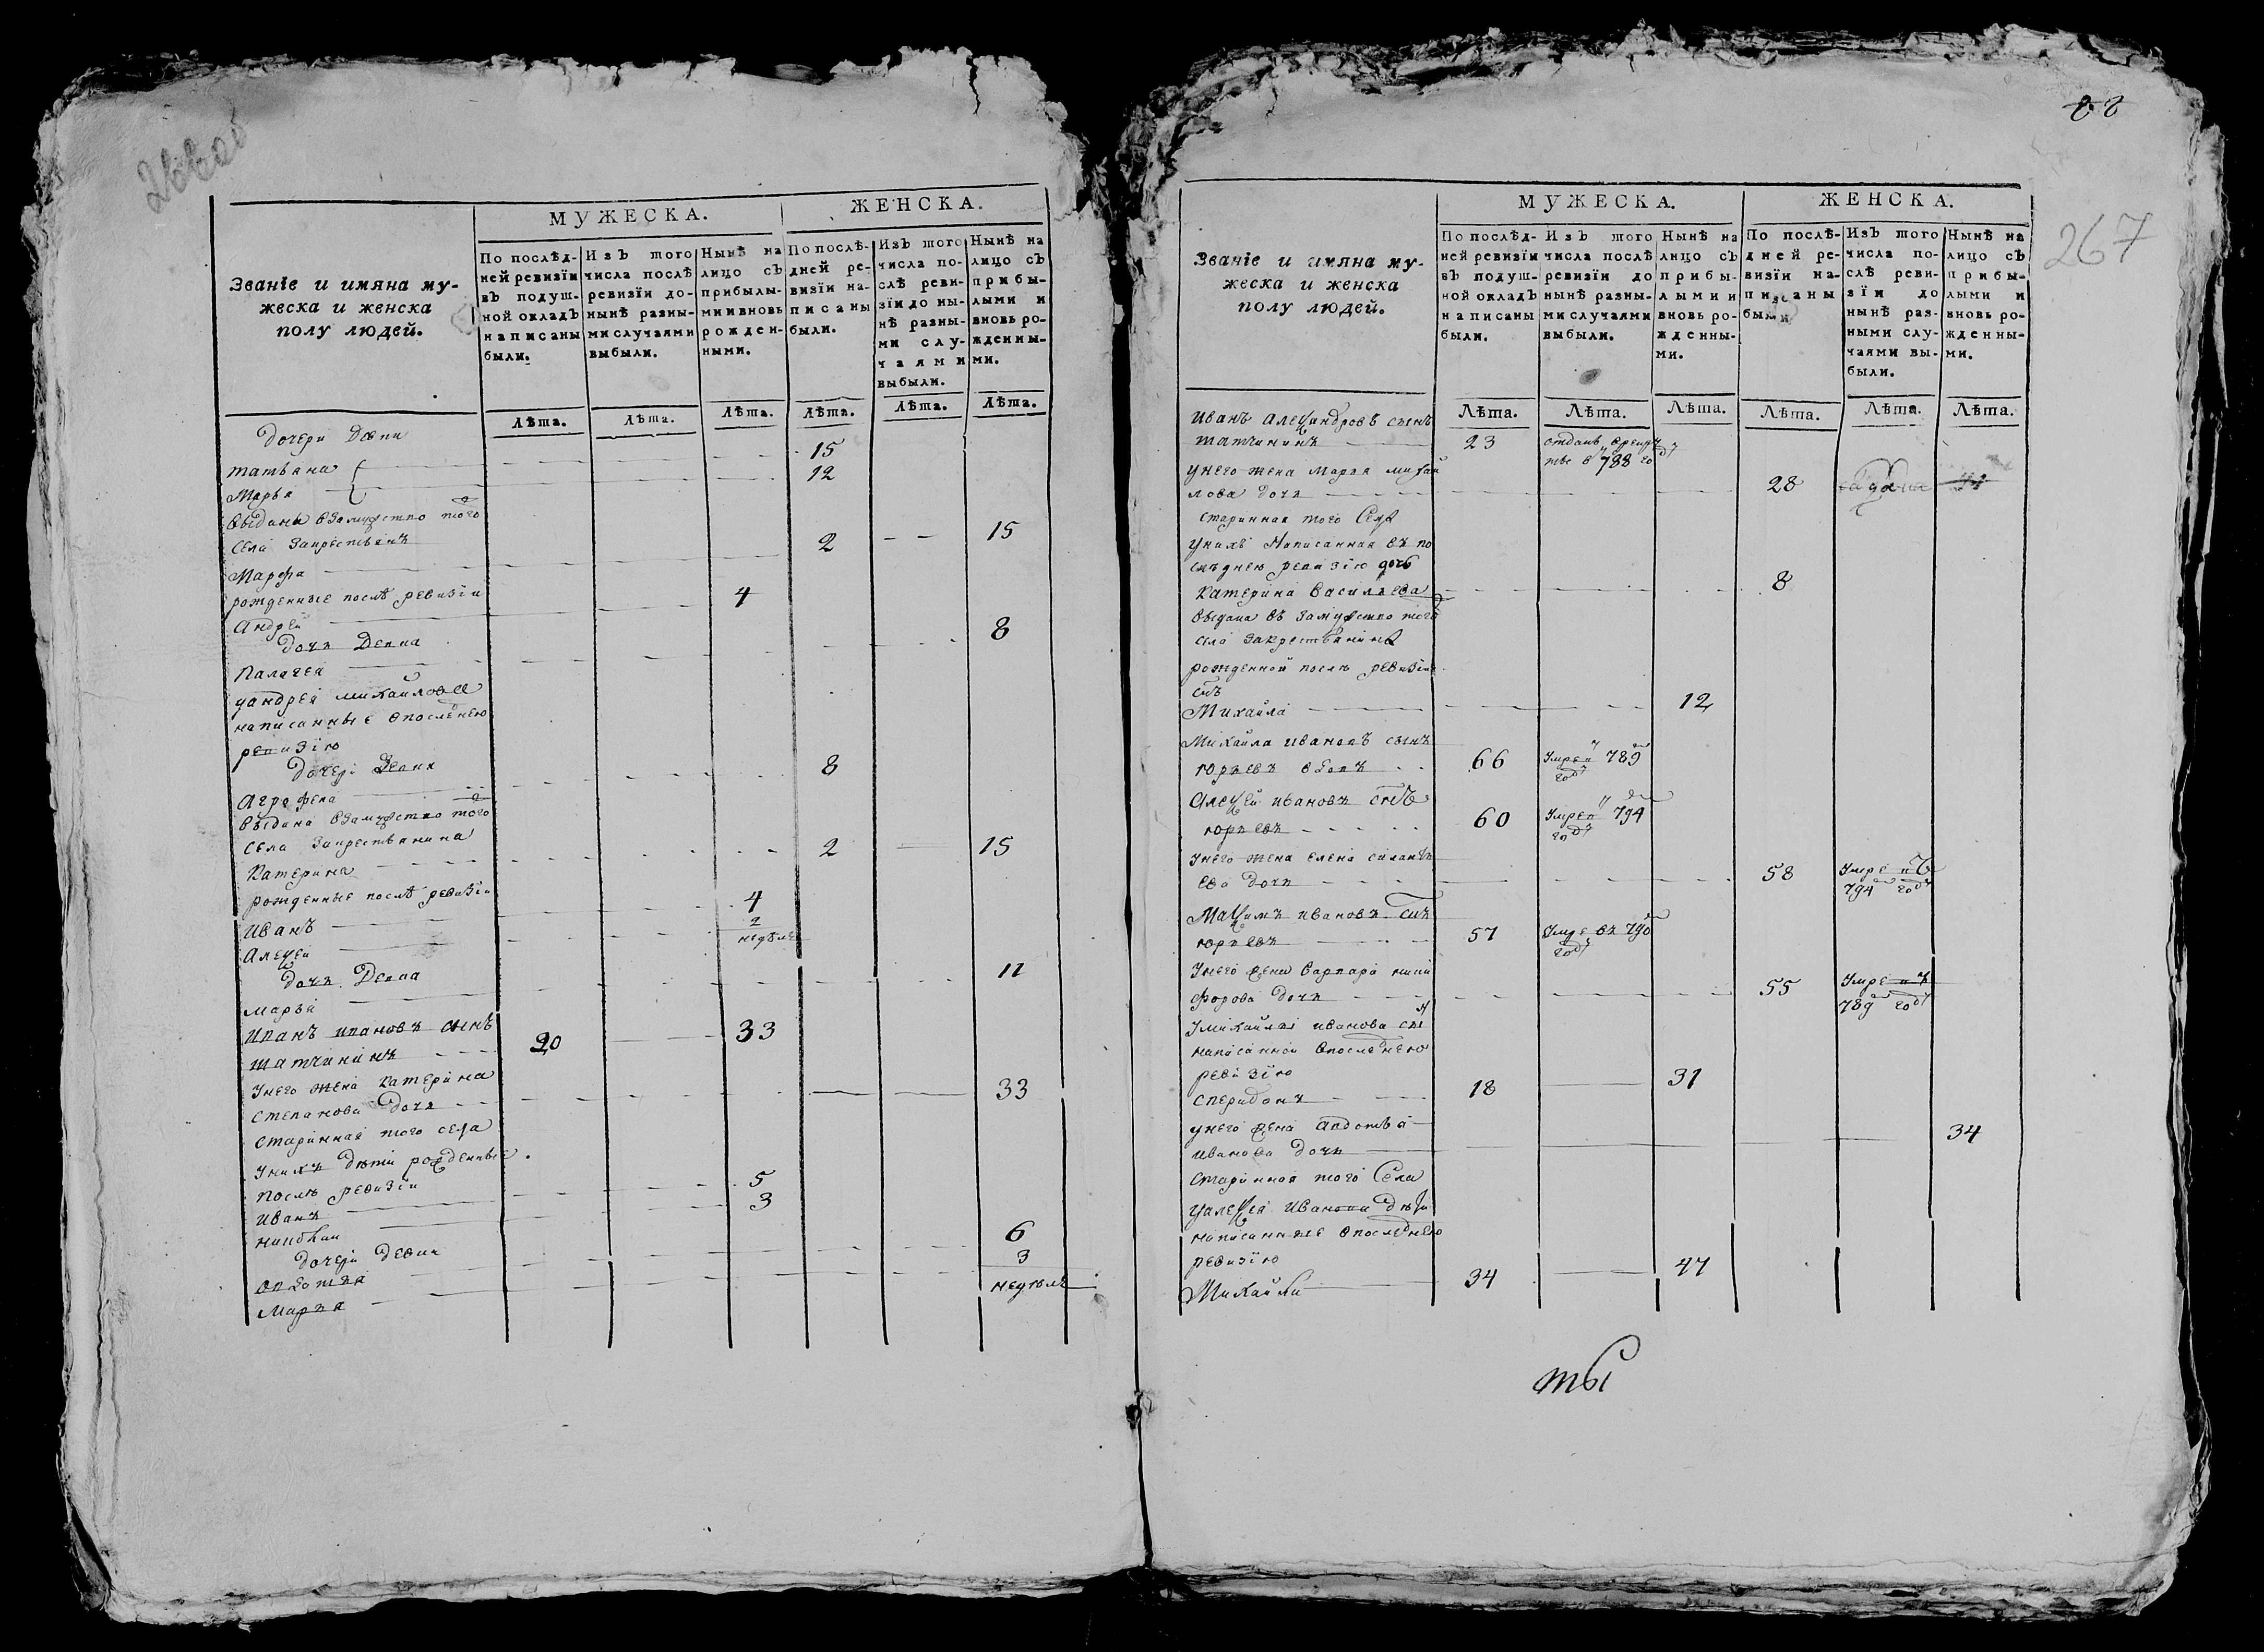 МУЖЕСКА.
ЖЕНСКА.
Званіе и имяна му-
жеска и женска
полу людей.
По послѣд-
ней ревизіи
въ подуш-
ной окладъ
написаны
были.
Изъ того
числа послѣ
ревизіи до-
нынѣ разны-
ми случаями
выбыли.
Нынѣ на
лицо съ
прибылы-
ми и вновь
рожден-
ными.
По послѣ-
дней ре-
визіи на-
писаны
были.
Изъ того
числа по-
слѣ реви-
зіи до ны-
нѣ разны-
ми слу-
чаями
выбыли.
Нынѣ на
лицо съ
прибы-
лыми и
вновь ро-
жденны-
ми.
Лѣта. Лѣта. Лѣта. Лѣта. Лѣта. Лѣта.
дочери
татьяна 15
Марья 12
выданы взамужство того
села
Марфа 2 15
рожденные послѣ ревизіи
андрей 4
дочь
палагея 8
уандрея михайлова
написанные впоследнею
ревизію
дочери
агрофена 8
выдана взамужство того
села закрестьянина
катерина 2 15
рожденные послѣ ревизіи
иванъ 4
алексей 2 недѣли
дочь девка
марья 11
иванъ ивановъ сынъ
шатчининъ 20 33
унего жена катерина
степанова дочь 33
старинная того села
унихъ дѣти рожденные
послѣ ревизіи
иванъ 5
3
дочери девки
6
марья 3 недѣли
267
МУЖЕСКА.
ЖЕНСКА.
Званіе и имяна му-
жеска и женска
полу людей.
По послѣд-
ней ревизіи
въ подуш-
ной окладъ
написаны
были.
Изъ того
числа послѣ
ревизіи до
нынѣ разны-
ми случаями
выбыли.
Нынѣ на
лицо съ
прибы-
лыми и
вновь ро-
жденны-
ми.
По послѣ-
дней ре-
визіи на-
писаны
были.
Изъ того
числа по-
слѣ реви-
зіи до
нынѣ раз-
ными слу-
чаями вы-
были.
Нынѣ на
лицо съ
прибы-
лыми и
вновь ро-
жденны-
ми.
Лѣта. Лѣта. Лѣта. Лѣта. Лѣта. Лѣта.
иванъ александровъ сынъ
шатчининъ 23 отданъ в рекру
ты в 788 год
унего жена марья михай
лова дочь 28
старинная того села
унихъ написанная въ по
следнею ревизію дочь
катерина васильева 8
выдана въ замужство того
села закрестьянина
рожденной послѣ ревизіи
снъ
Михайла 12
Михайла ивановъ сынъ
юрьевъ 66 умре в 789 году
алексей ивановъ снъ
юрьевъ 60 умре в 794 году
унего жена елена
ева дочь 58 умре въ 794 году
Максимъ ивановъ снъ
юрьевъ 57 умре въ 790 году
унего жена варвара ники
форова дочь 55 умре въ 789 году
умихайлы иванова снъ
написанной впоследнею
ревизію
сперидонъ 18 31
унего жена авдотья
иванова дочь 34
старинная того села
уалексея иванова дети
написанные впоследнею
ревизію
Михайла 34 47
ты